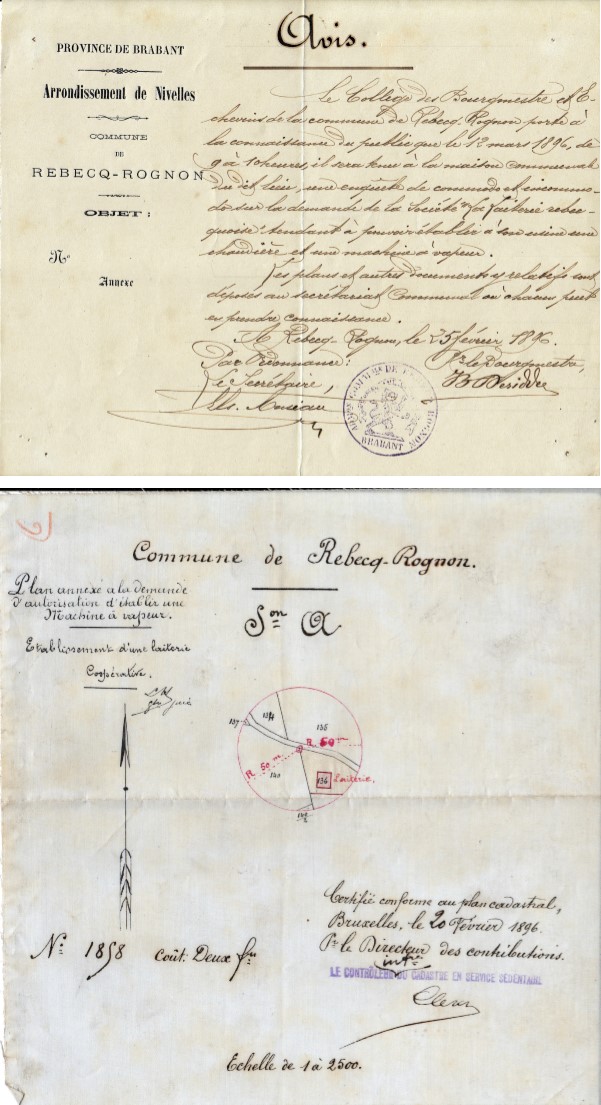 PROVINCE DE BRABANT
Arrondissement de Nivelles
COMMUNE
DE
REBECQ-ROGNON
OBJET :
N°
Annexe
Avis.
Le Collège des Bourgmestre et E-
chevins de la commune de Rebecq-Rognon porte à
la connaissance du public que le 12 mars 1896, de
9 à 10 heures, il sera tenu à la maison communale
du dit lieu, une enquête de commodo et incommo-
do sur la demande de la Société "La Laiterie rebec-
quoise" tendant à pouvoir établir à son usine une
chaudière et une machine à vapeur.
Les plans et autres documents y relatifs sont
déposés au secrétariat communal où chacun peut
en prendre connaissance.
A Rebecq-Rognon, le 25 février 1896.
Par Ordonnance :
Le Secrétaire,
Pr le Bourgmestre,
BRABANT
ROGNON
Commune de Rebecq-Rognon.
Plan annexé à la demande
d'autorisation d'établir une
Machine à vapeur.
Etablissement d'une laiterie
Coopérative.
Son A
137
134
135
R 50 m
R 50 m
140
136
Laiterie.
Certifié conforme au plan cadastral,
Bruxelles, le 20 Février 1896.
Pr le Directeur des contributions.
intre
LE CONTRÔLEUR DU CADASTRE EN SERVICE SÉDENTAIRE
N° 1858
Coût: Deux frs
Echelle de 1 à 2500.